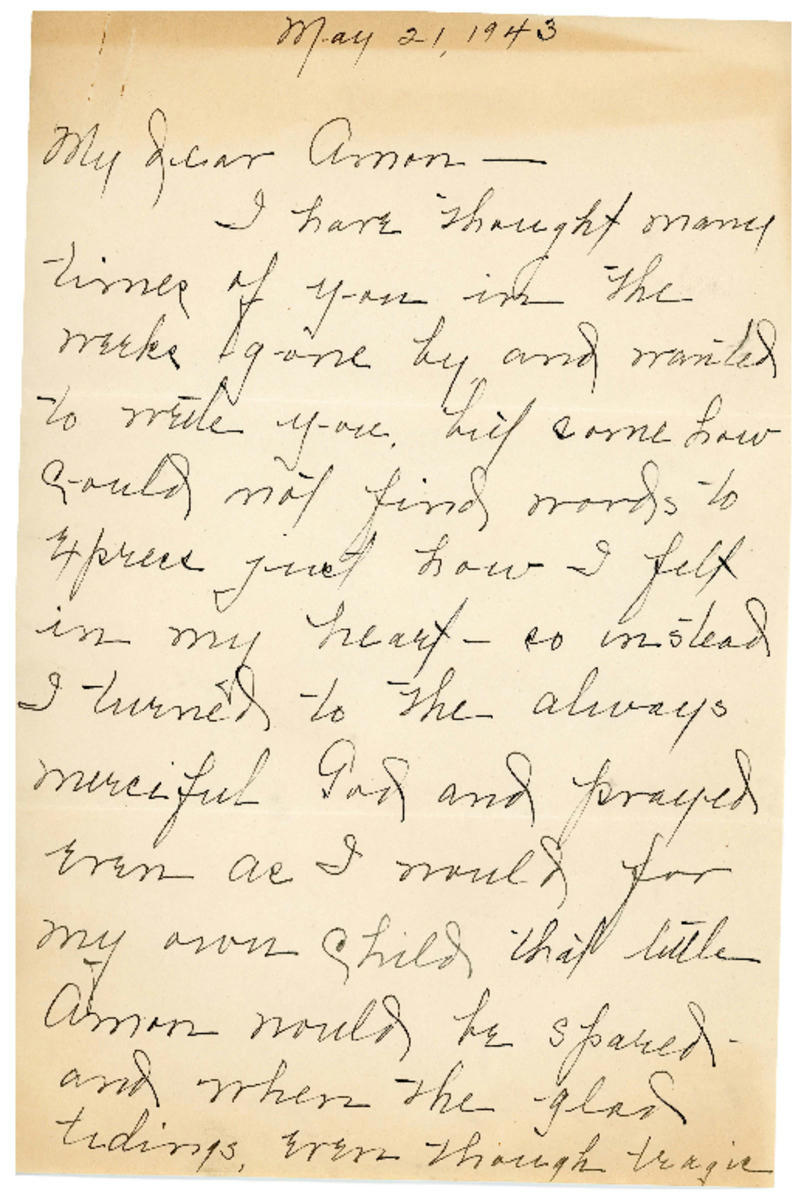 May 21, 1943
My dear Amon —
I have thought many
times of you in the
weeks gone by and wanted
to write you, but some how
could not find words to
express just how I felt
in my heart – so instead
I turned to the always
merciful God and prayed
even as I would for
my own child that little
Amon would be spared –
and when the glad
tidings, even though tragic